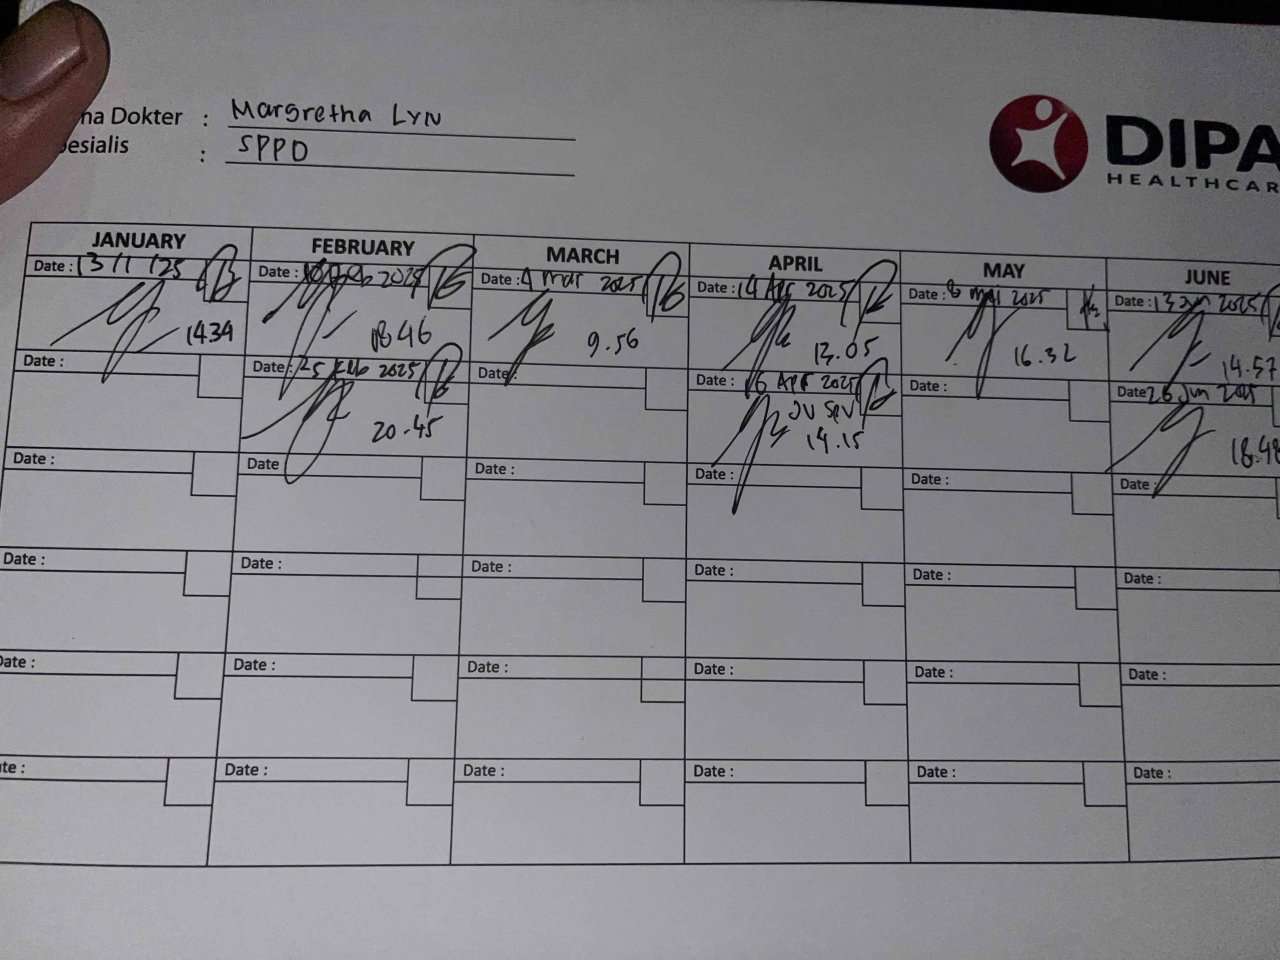 na Dokter : Margretha Lyn
esialis : SPPD
DIPA
HEALTHCAR
JANUARY FEBRUARY MARCH APRIL MAY JUNE
Date : 13/1/25 Date : Feb 2025 Date : 4 Mar 2025 Date : 14 Apr 2025 Date : 8 mei 2025 Date : 13 Jun 2025
1434 18.46 9.56 13.05 16.32 14.57
Date : Date : 25 Feb 2025 Date : Date : 16 Apr 2025 Date : Date 26 Jun 2025
20.45 14.15 18.48
Date : Date Date : Date : Date : Date :
Date : Date : Date : Date : Date : Date :
Date : Date : Date : Date : Date : Date :
te : Date : Date : Date : Date : Date :